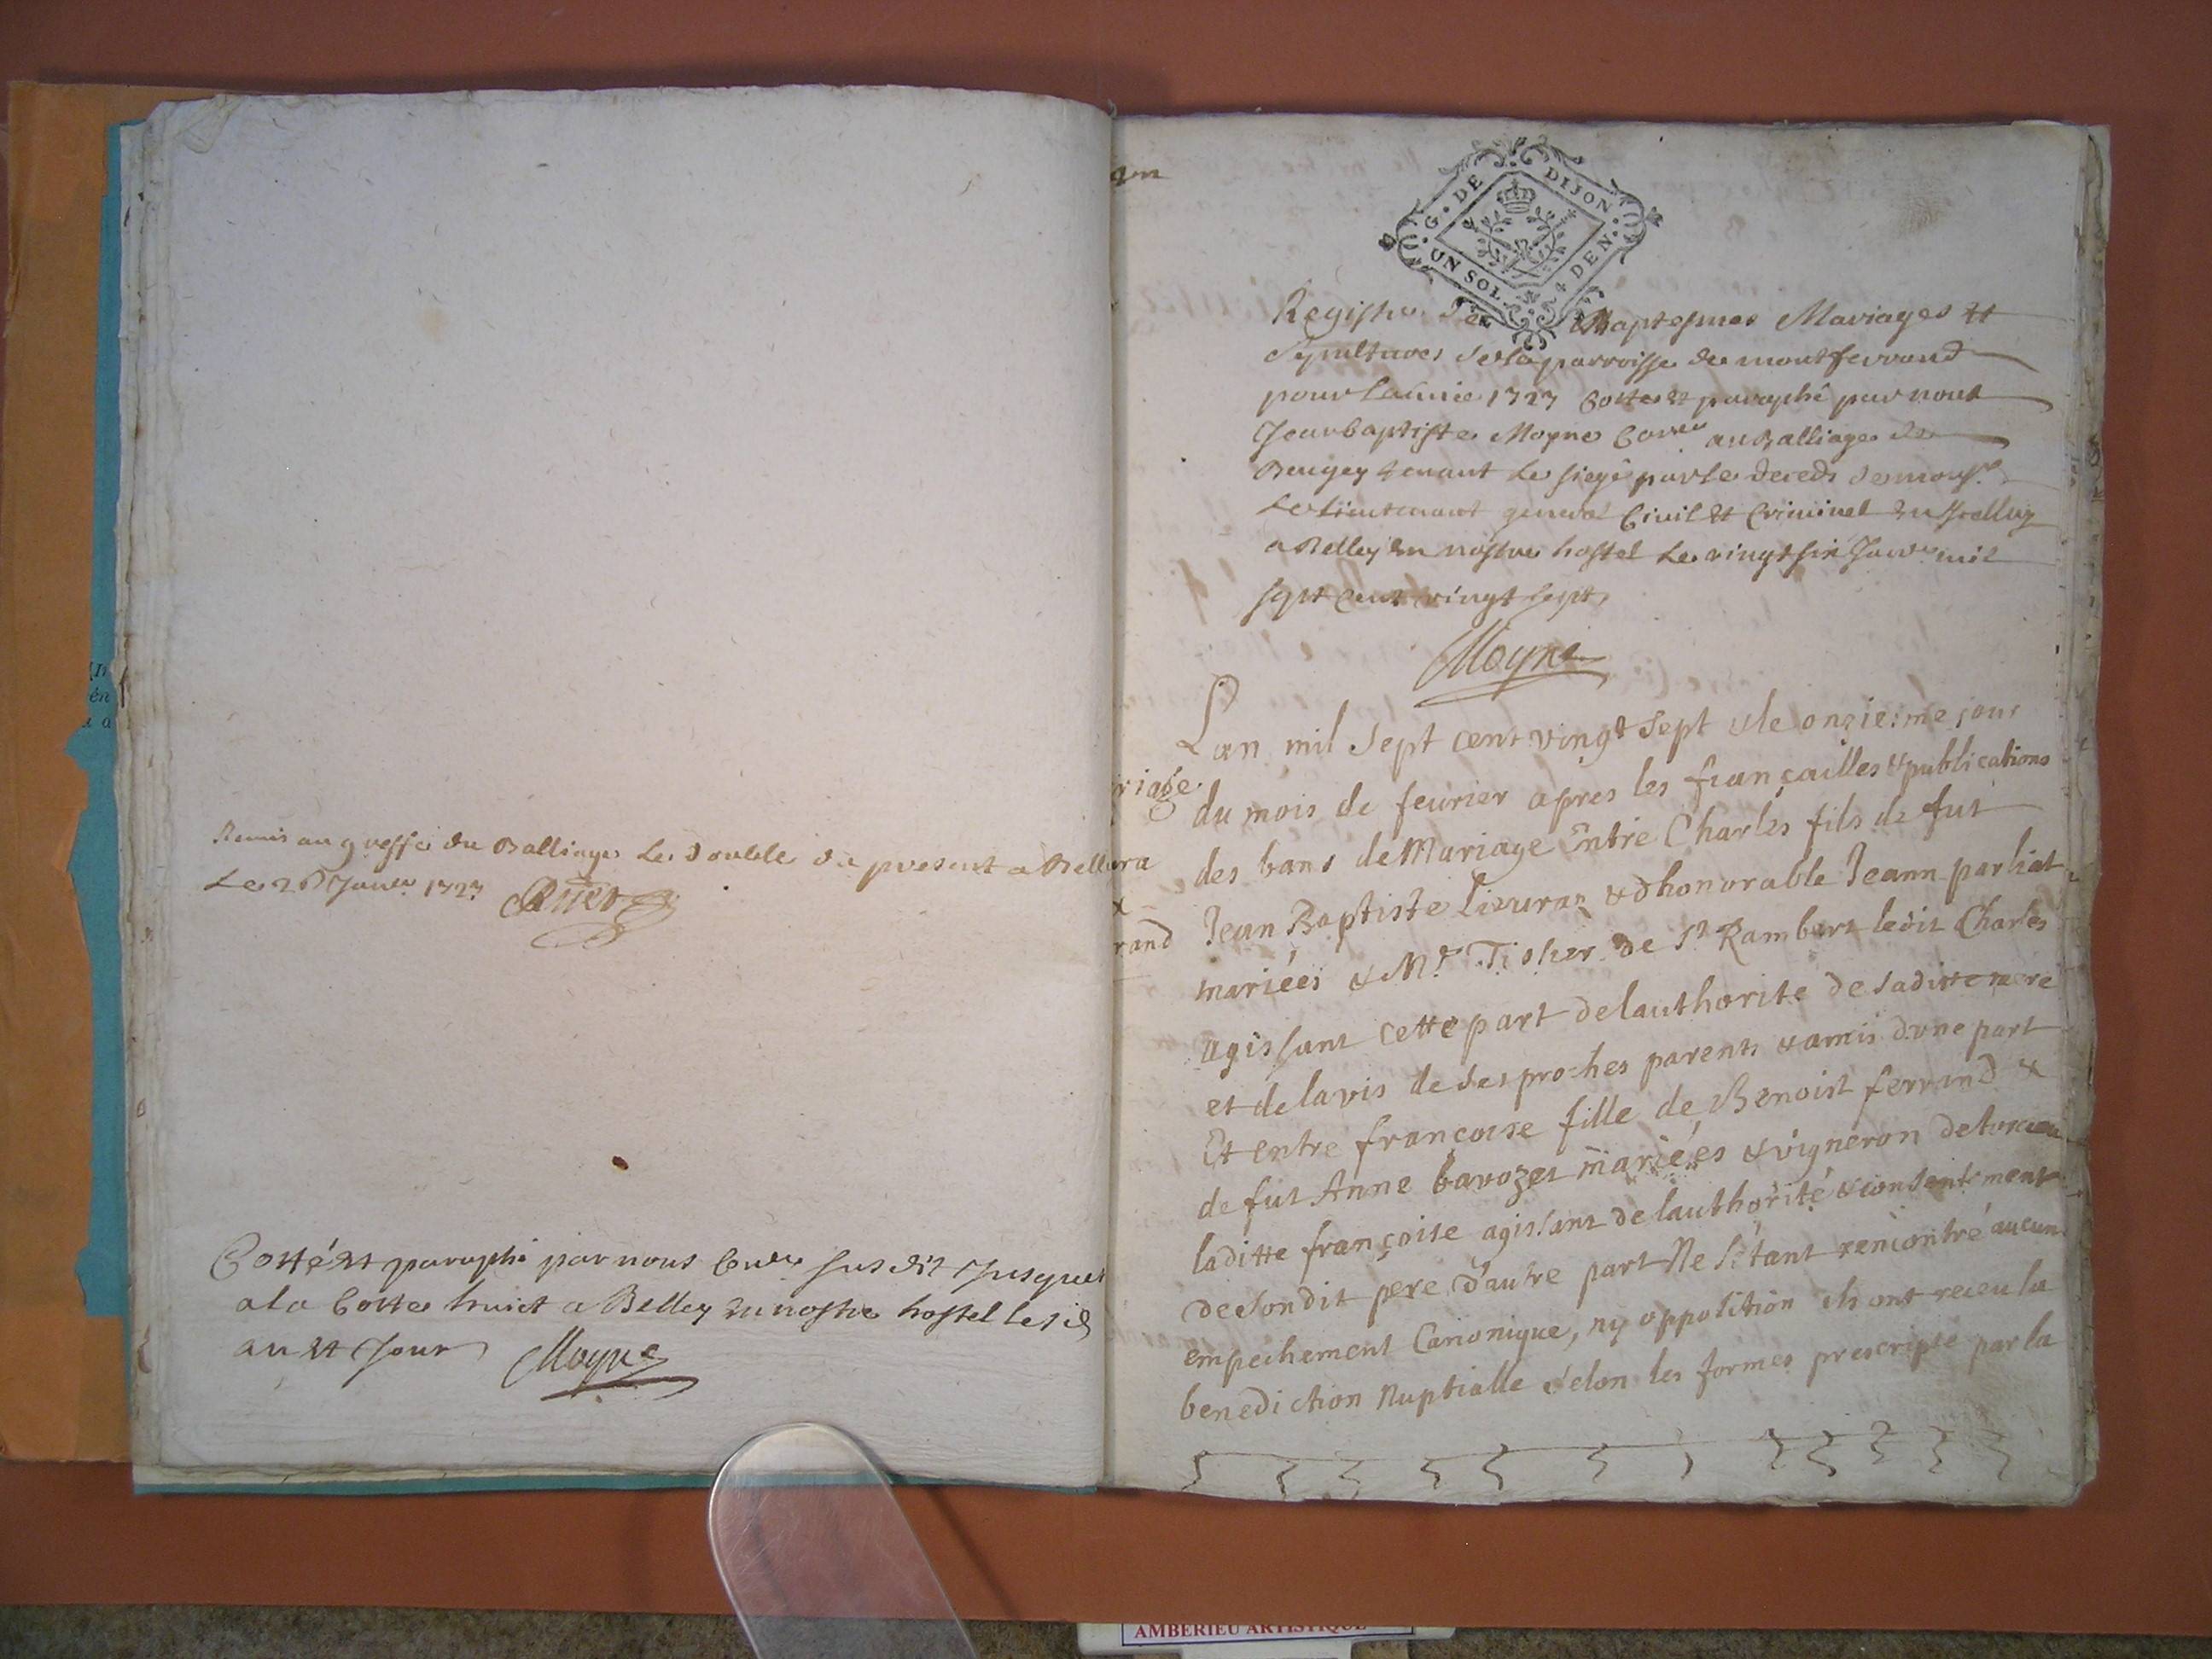 Remis au greffe du Balliage Le double du present a Belle
Le 26 Janer 1727
Cotté et paraphé par nous Coner susdit Jusques
a la Cotte huict a Belley en nostre hostel les
an et Jour Moyne
G. DE DIJON
UN SOL DEN.
Registre des Baptesmes Mariages et
Sepultures de la parroisse de montferrand
pour Lannée 1727 Cottes et paraphé par nous
Jean baptiste Moyne Coner au Balliage de
Beugey tenant Le siege par le deceds de monsr
Le Lieutenant general Civil et Criminel
a Belley en nostre hostel Le vingt six Janer mil
sept cent vingt sept
Moyne
Lan mil sept cent vingt sept & le onzieme jour
riage
du mois de feurier apres les françailles & publications
des bans de Mariage Entre Charles fils de fut
rand
Jean Baptiste & dhonorable Jeann parliat
mariées & Mr Tisher de St Rambert ledit Charles
agissant cette part delauthorite de saditte mere
et delavis de ses proches parents & amis dune part
Et entre françoise fille de Benoist ferrand &
de fut Anne bavozet mariées & vigneron de torcieu
laditte françoise agissant de lauthorité & consentement
de son dit pere d'autre part Ne s'etant rencontré aucun
empechement Canonique, ny opposition ils ont receu la
benediction Nuptialle selon les formes prescripte par la
AMBERIEU ARTISTIQUE